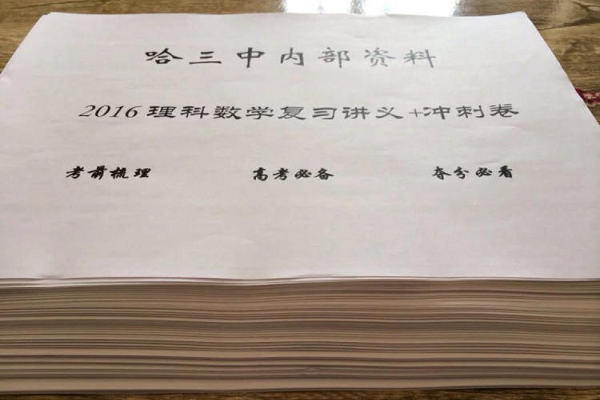 哈三中内部资料
2016理科数学复习讲义+冲刺卷
考前梳理 高考必备 夺分必看